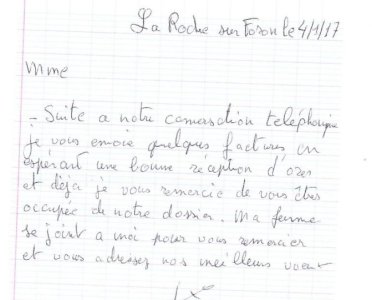 La Roche sur Foron le 4/1/17
Mme
- Suite a notre conversation téléphonique
je vous envoie quelques factures en
espérant une bonne réception d'ores
et déja je vous remercie de vous êtres
occupée de notre dossier. Ma femme
se joint a moi pour vous remercier
et vous adressez nos meilleurs voeux